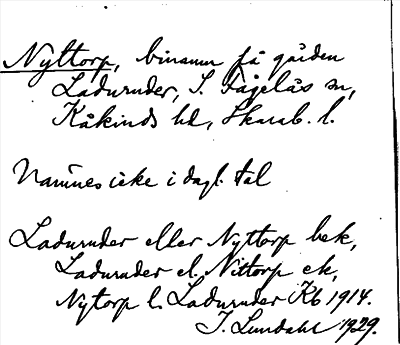 Nyttorp, binamn på gården
Ladururder, S. Fågelås sn,
Kåkinds hd, Skarab. l.
Namnes icke i dagl. tal
Ladururder eller Nyttorp bek,
Ladururder el. Nittorp ek,
Nytorp l. Ladururder Kb 1914.
J. Lundahl 1929.